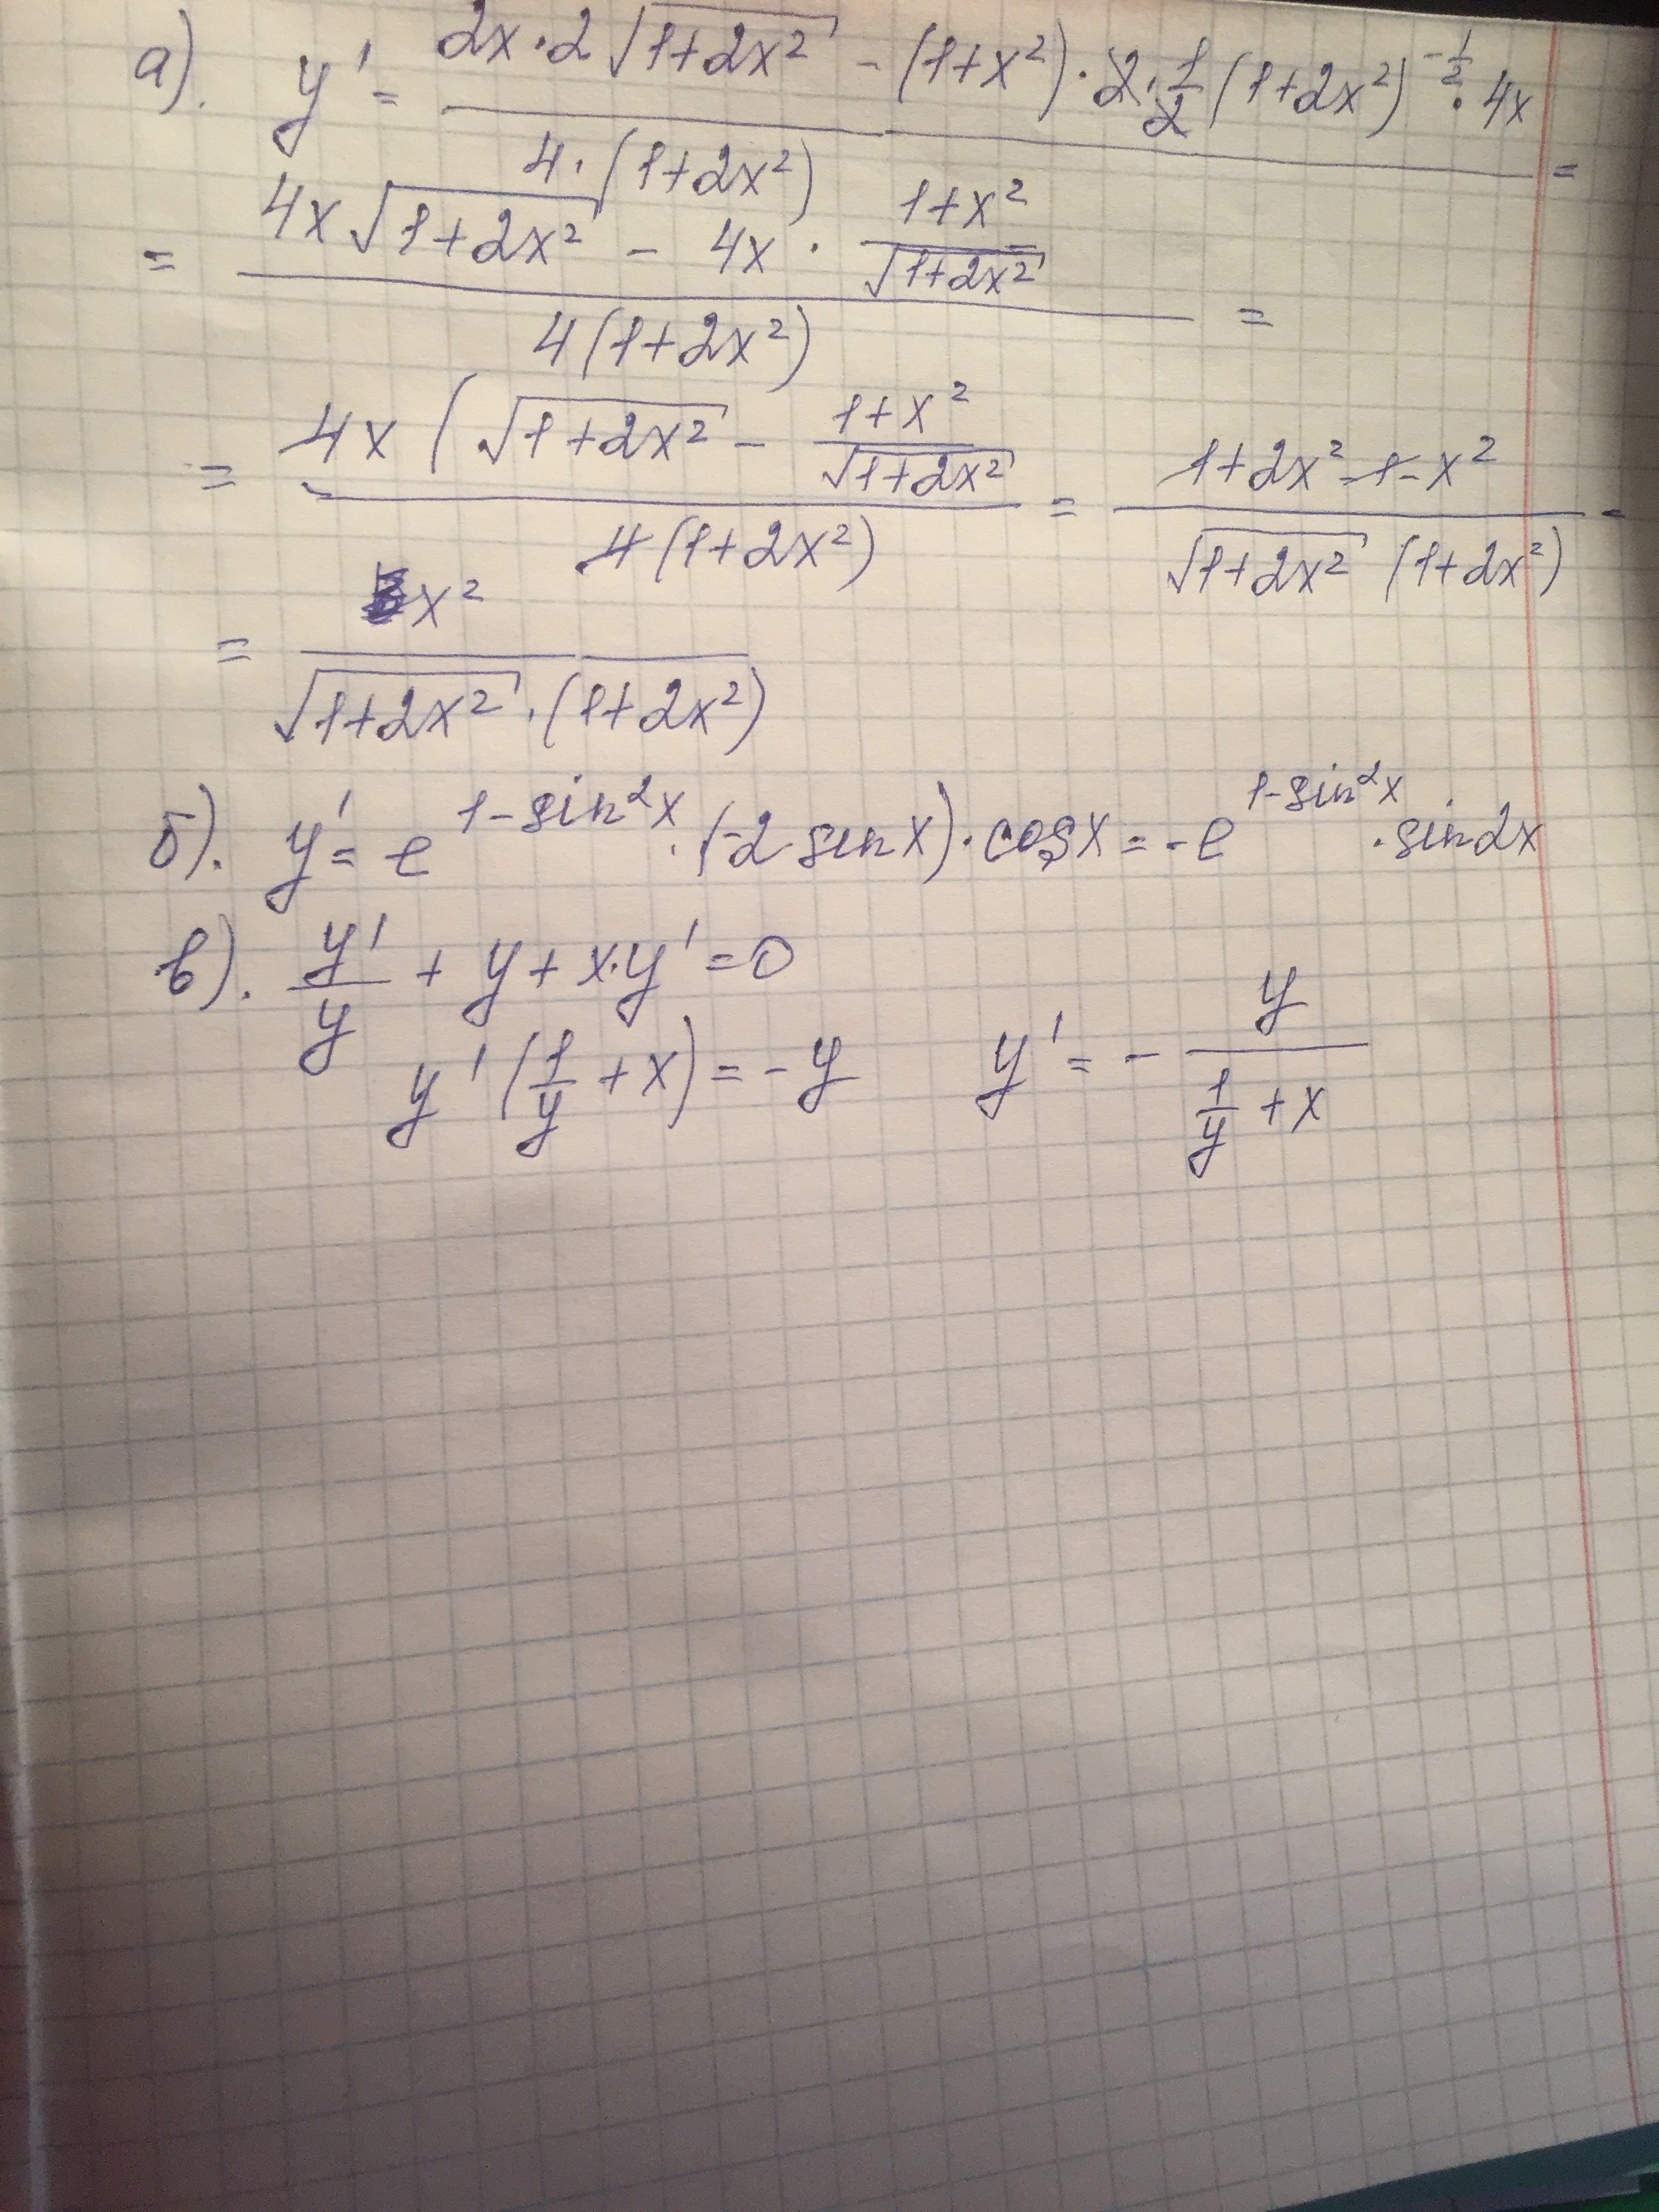 а). y' = (2x·2√(1+2x²) - (1+x²)·2·1/2(1+2x²)^(-1/2)·4x)/(4·(1+2x²)) =
= (4x√(1+2x²) - 4x·(1+x²)/√(1+2x²))/(4(1+2x²)) =
= (4x(√(1+2x²) - (1+x²)/√(1+2x²))/(4(1+2x²)) = (1+2x²-1-x²)/(√(1+2x²) (1+2x²)) -
= x²/(√(1+2x²)·(1+2x²))
б). y' = e^(1-sin²x)·(-2 sinx)·cosx = -e^(1-sin²x)·sin2x
в). y'/y + y + x·y' = 0
y'(1/y + x) = -y y' = - y/(1/y + x)